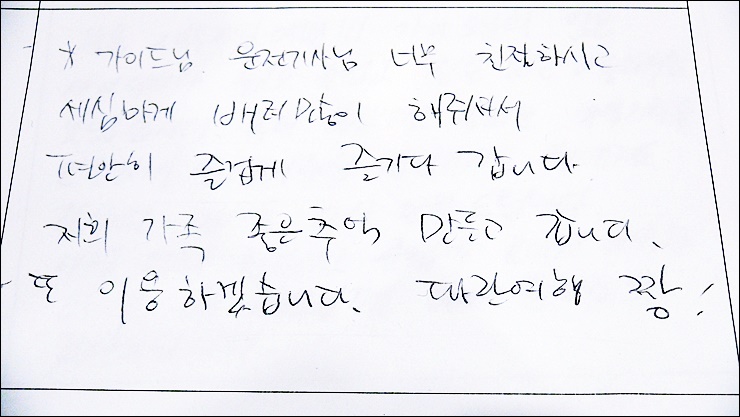 * 가이드님 운전기사님 너무 친절하시고
세심하게 배려많이 해주셔서
편안히 즐겁게 즐기다 갑니다
저희 가족 좋은추억 만들고 갑니다.
또 이용하겠습니다. 파란여행 짱!